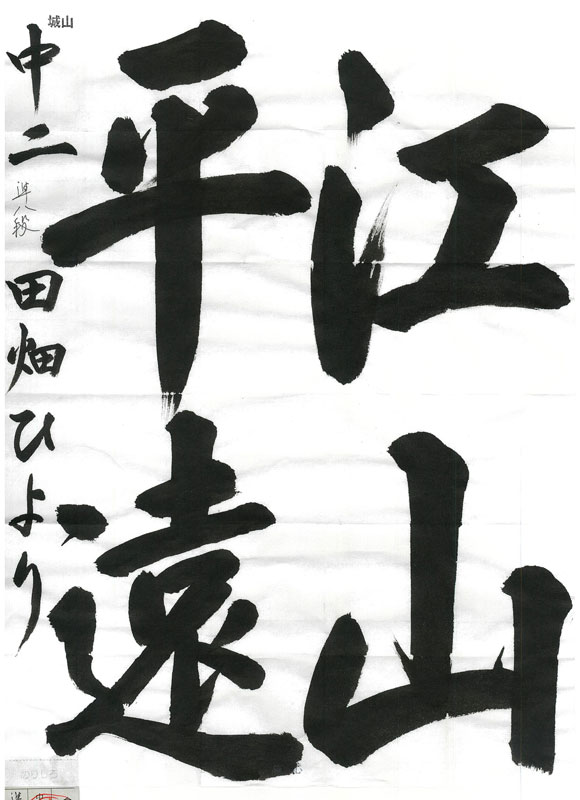 江山
平遠
城山
中二 準八段 田畑ひより
のりしろ